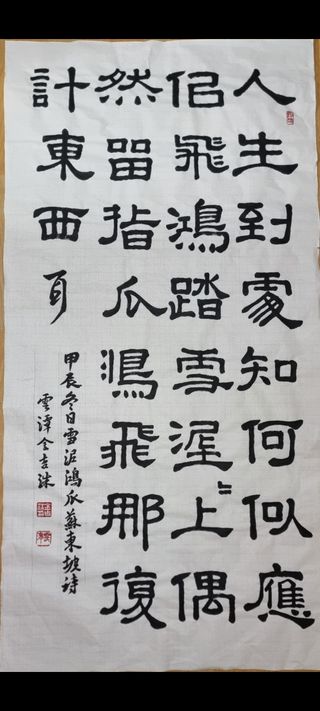 人生到處知何似應
佀飛鴻踏雪埿〻上偶
然留指爪鴻飛那復
計東西
甲辰冬日雪泥鴻爪蘇東坡詩
雲潭全吉洙